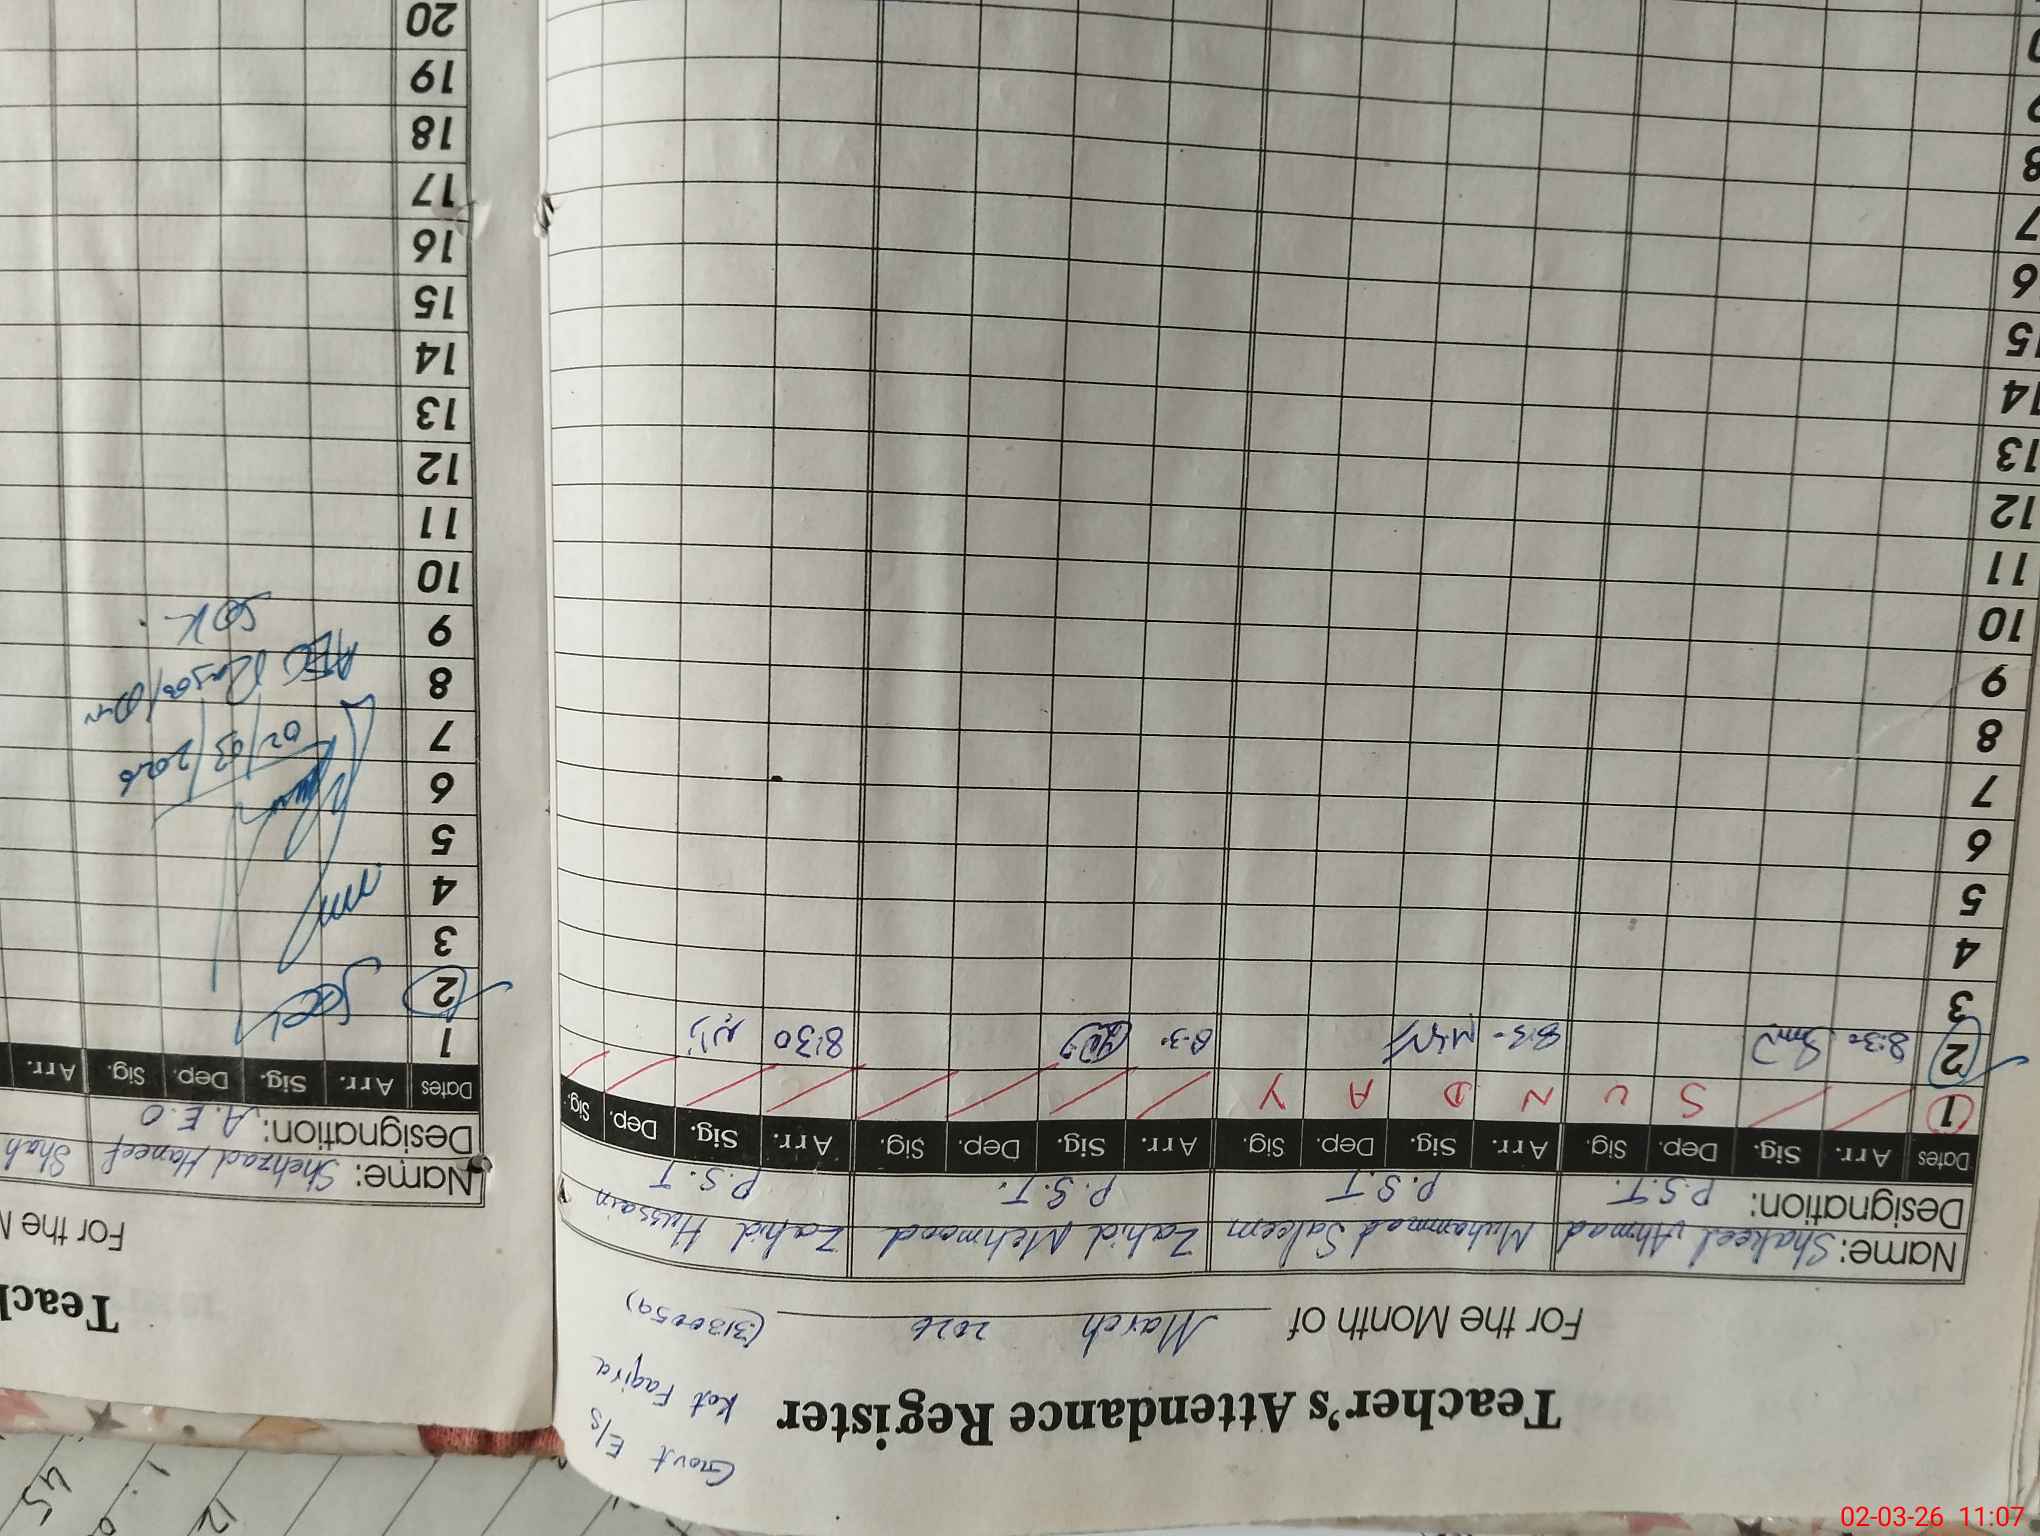 Govt E/S
Kot Faqira
(31300059)
Teacher's Attendance Register
For the Month of March 2026
Name: Shakeel Ahmad Muhammad Saleem Zahid Mehmood Zahid Hussain
Designation: P.S.T. P.S.T P.S.T. P.S.T
Dates Arr. Sig. Dep. Sig. Arr. Sig. Dep. Sig. Arr. Sig. Dep. Sig. Arr. Sig. Dep. Sig.
1 S U N D A Y
2 8:30 8:30 8:30 8:30
3
4
5
6
7
8
9
10
11
12
13
14
15
16
17
18
19
20
Teach
For the M
Name: Shehzad Haneef Shah
Designation: A.E.O
Dates Arr. Sig. Dep. Sig. Arr.
1
2
3
4
5
6
7 02/03/2026
8 AEO
9
10
11
12
13
14
15
16
17
18
19
20
12
45
02-03-26 11:07